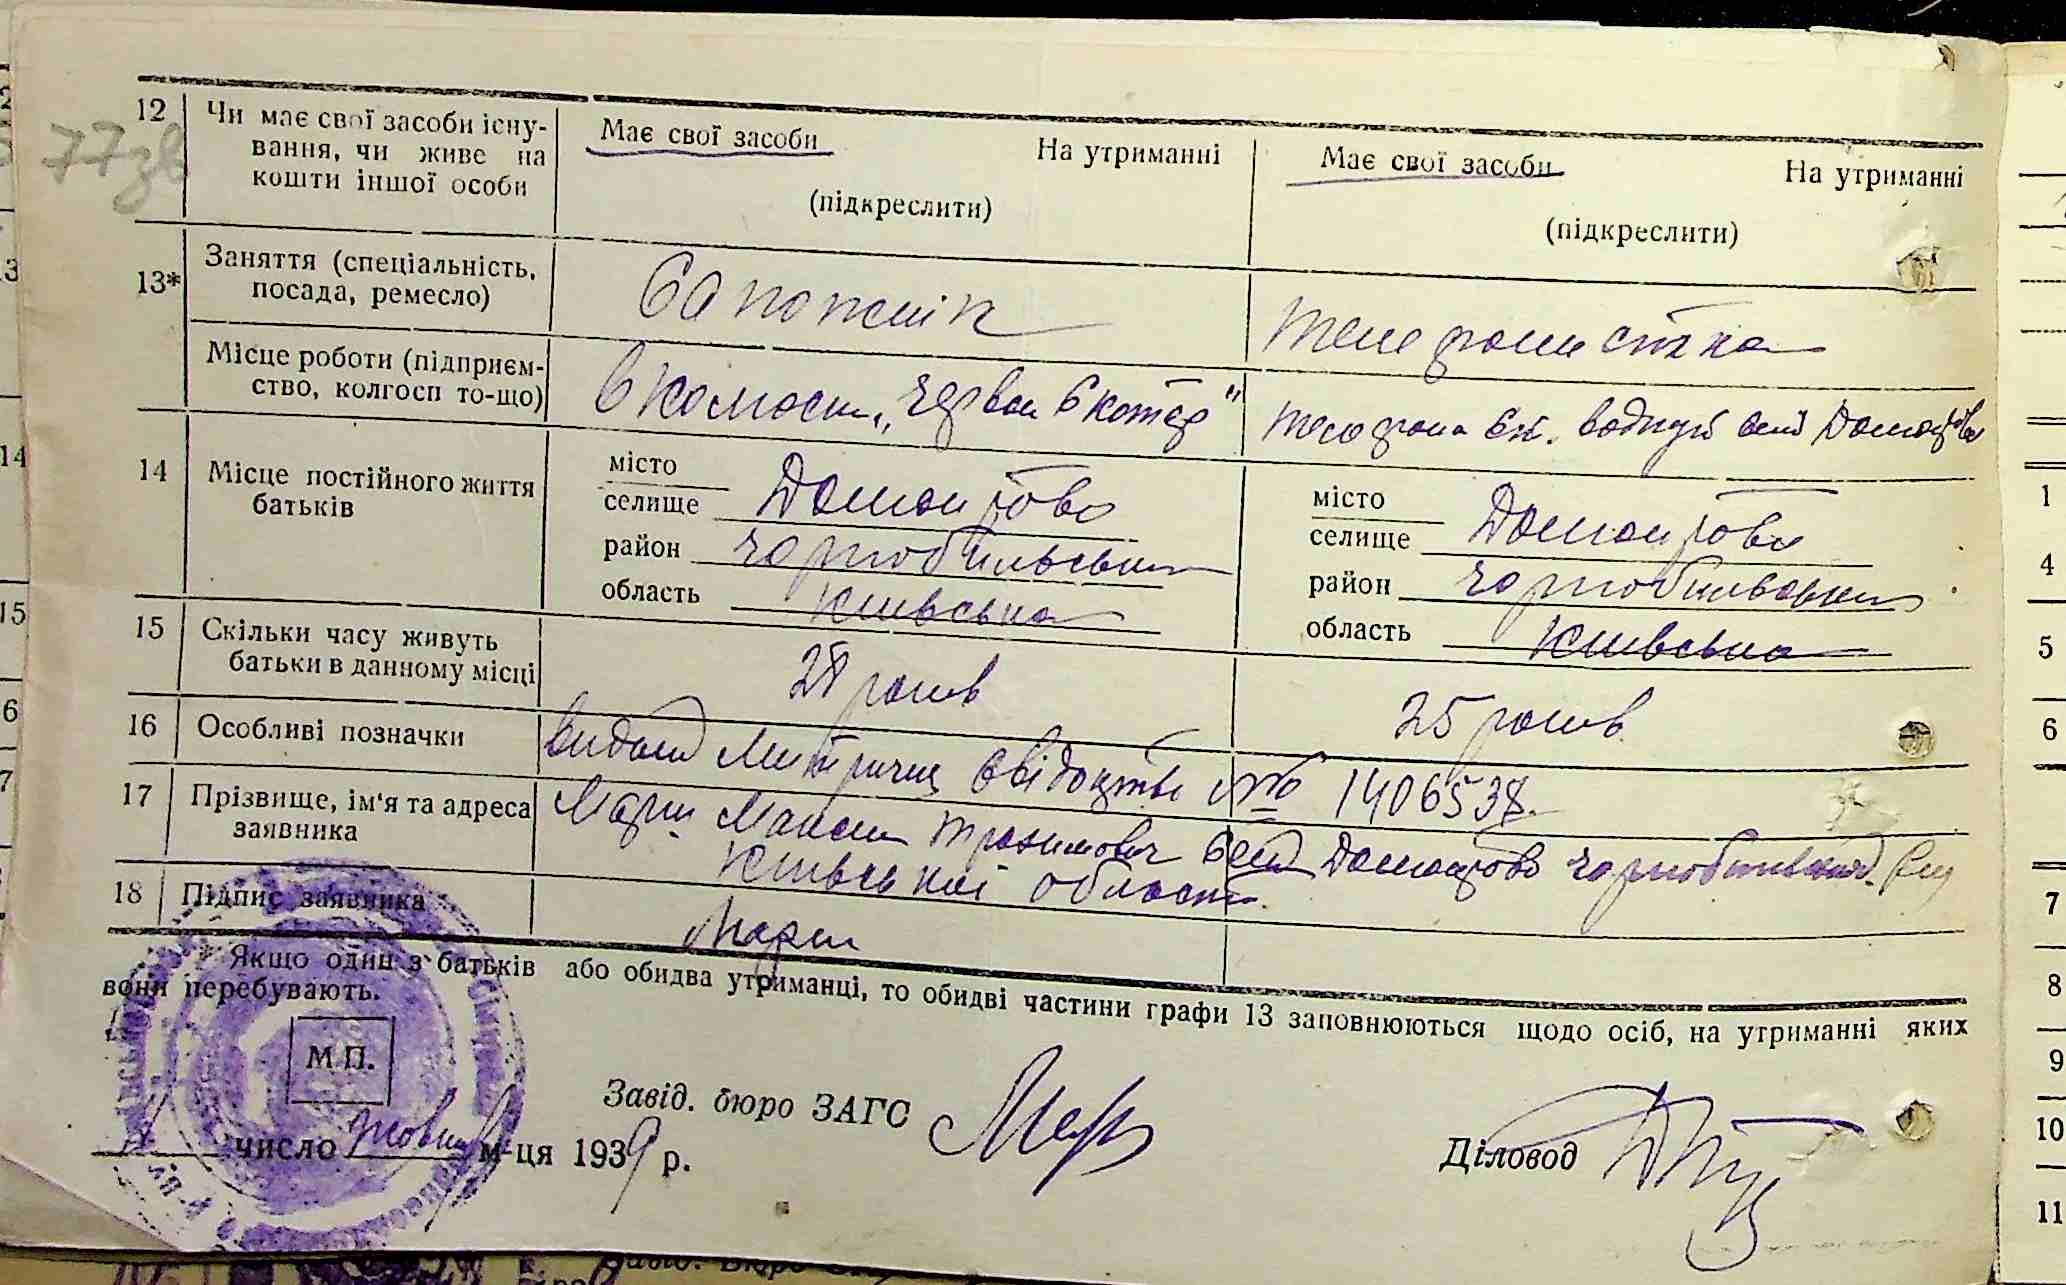 77зв
12 Чи має свої засоби існу-
вання, чи живе на
кошти іншої особи
Має свої засоби На утриманні
(підкреслити)
Має свої засоби На утриманні
(підкреслити)
13* Заняття (спеціальність,
посада, ремесло)
Сапожнік
телефоністка
Місце роботи (підприєм-
ство, колгосп то-що)
14 Місце постійного життя
батьків
місто
селище Домантово
район Чорнобильський
область Київська
місто
селище Домантово
район Чорнобильський
область Київська
15 Скільки часу живуть
батьки в данному місці
28 років
25 років
16 Особливі позначки
видано Метричне свідоцтво № 1406538
17 Прізвище, ім'я та адреса
заявника
Максим Трохимович село Домантово
Київської області
18 Підпис заявника
* Якщо один з батьків або обидва утриманці, то обидві частини графи 13 заповнюються щодо осіб, на утриманні яких
вони перебувають.
М.П.
число жовтня м-ця 1939 р.
Завід. бюро ЗАГС
Діловод
1
4
5
6
7
8
9
10
11